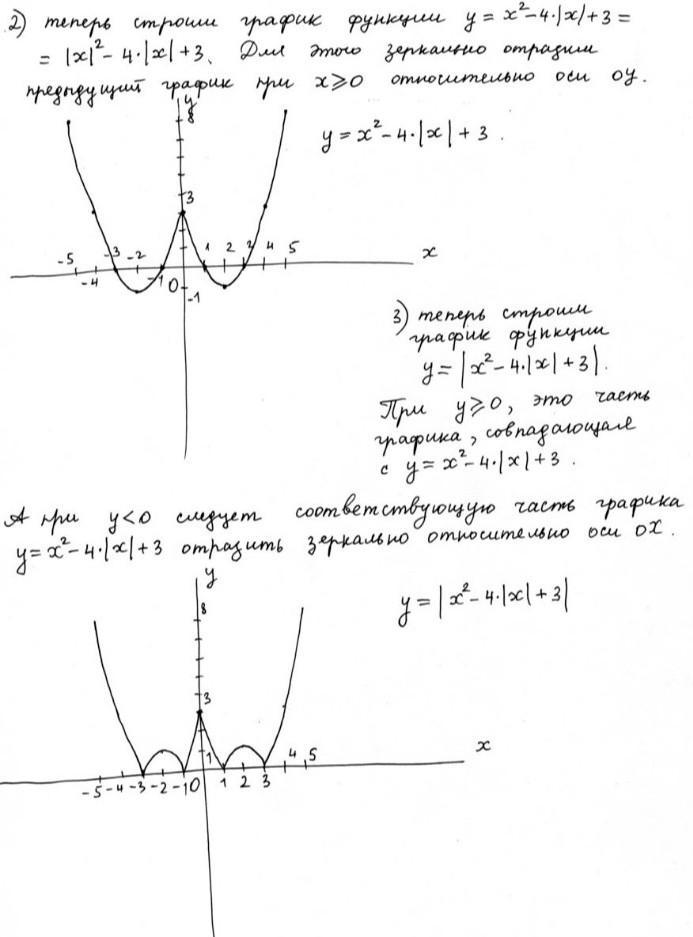 2) теперь строим график функции y = x²-4·|x|+3 =
= |x|² - 4·|x| + 3. Для этого зеркально отразим
предыдущий график при x⩾0 относительно оси OY.
y
8
y = x² - 4·|x| + 3.
3
-5 -3 -2 1 2 3 4 5 x
-4 -1 0
-1
3) теперь строим
график функции
y = |x² - 4·|x| + 3|.
При y⩾0, это часть
графика, совпадающая
с y = x² - 4·|x| + 3.
А при y<0 следует соответствующую часть графика
y = x² - 4·|x| + 3 отразить зеркально относительно оси OX.
y
y = |x² - 4·|x| + 3|
8
3
1 4 5 x
-5 -4 -3 -2 -1 0 1 2 3